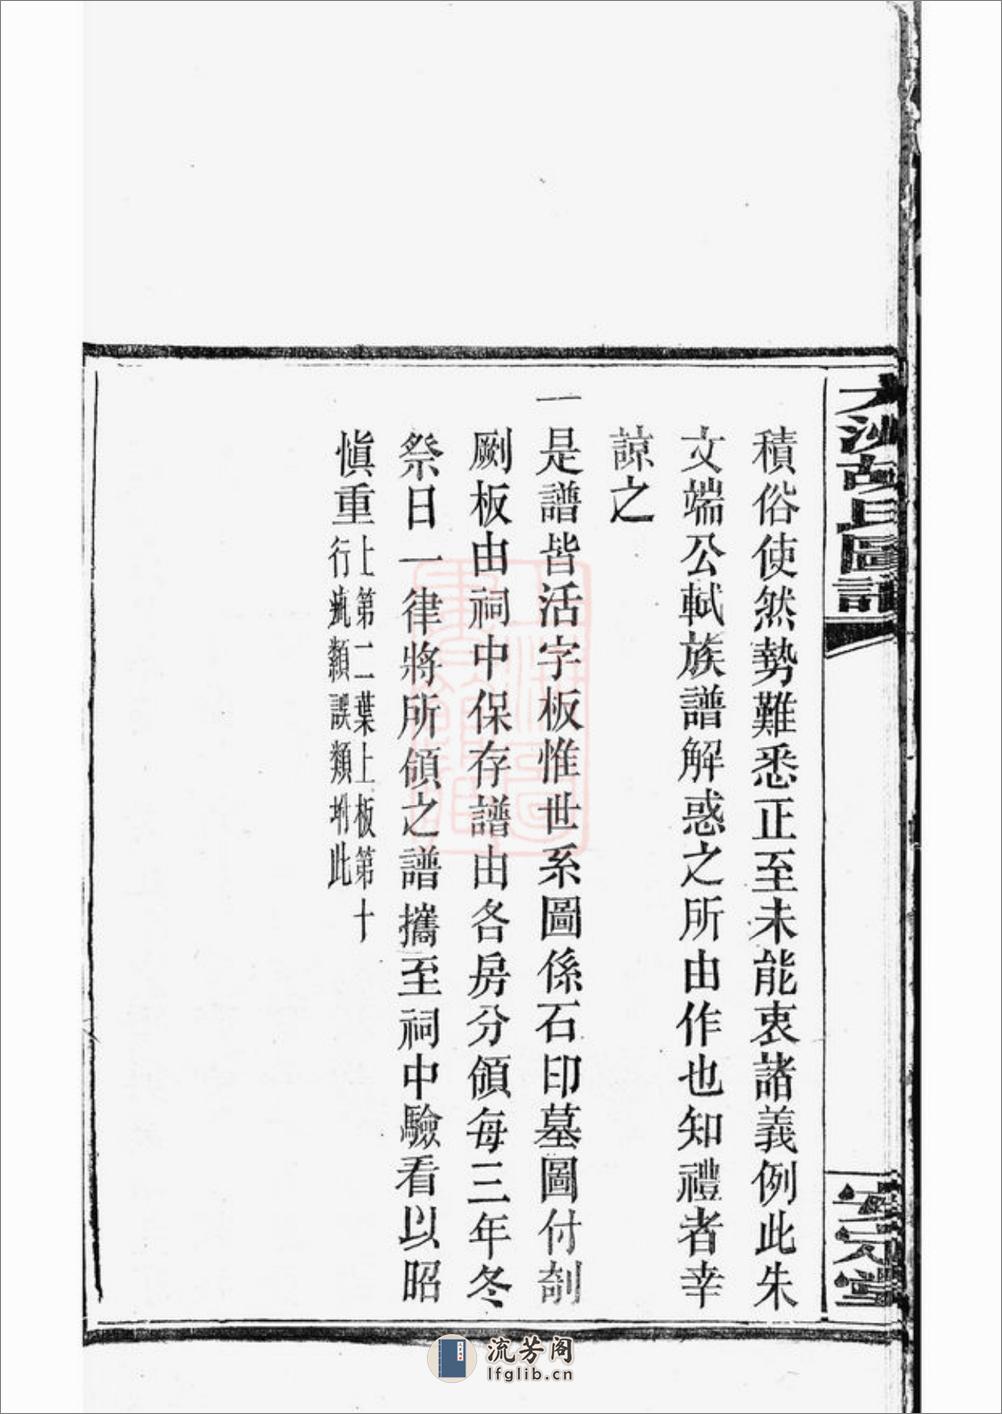 大沙胡氏圖譜
積俗使然勢難悉正至未能衷諸義例此朱
文端公軾族譜解惑之所由作也知禮者幸
諒之
一是譜皆活字板惟世系圖係石印墓圖付剞
劂板由祠中保存譜由各房分領每三年冬
祭日一律將所領之譜攜至祠中驗看以昭
慎重上第二葉上板第十
行疵纇誤類坿此
流芳阁
lfglib.cn